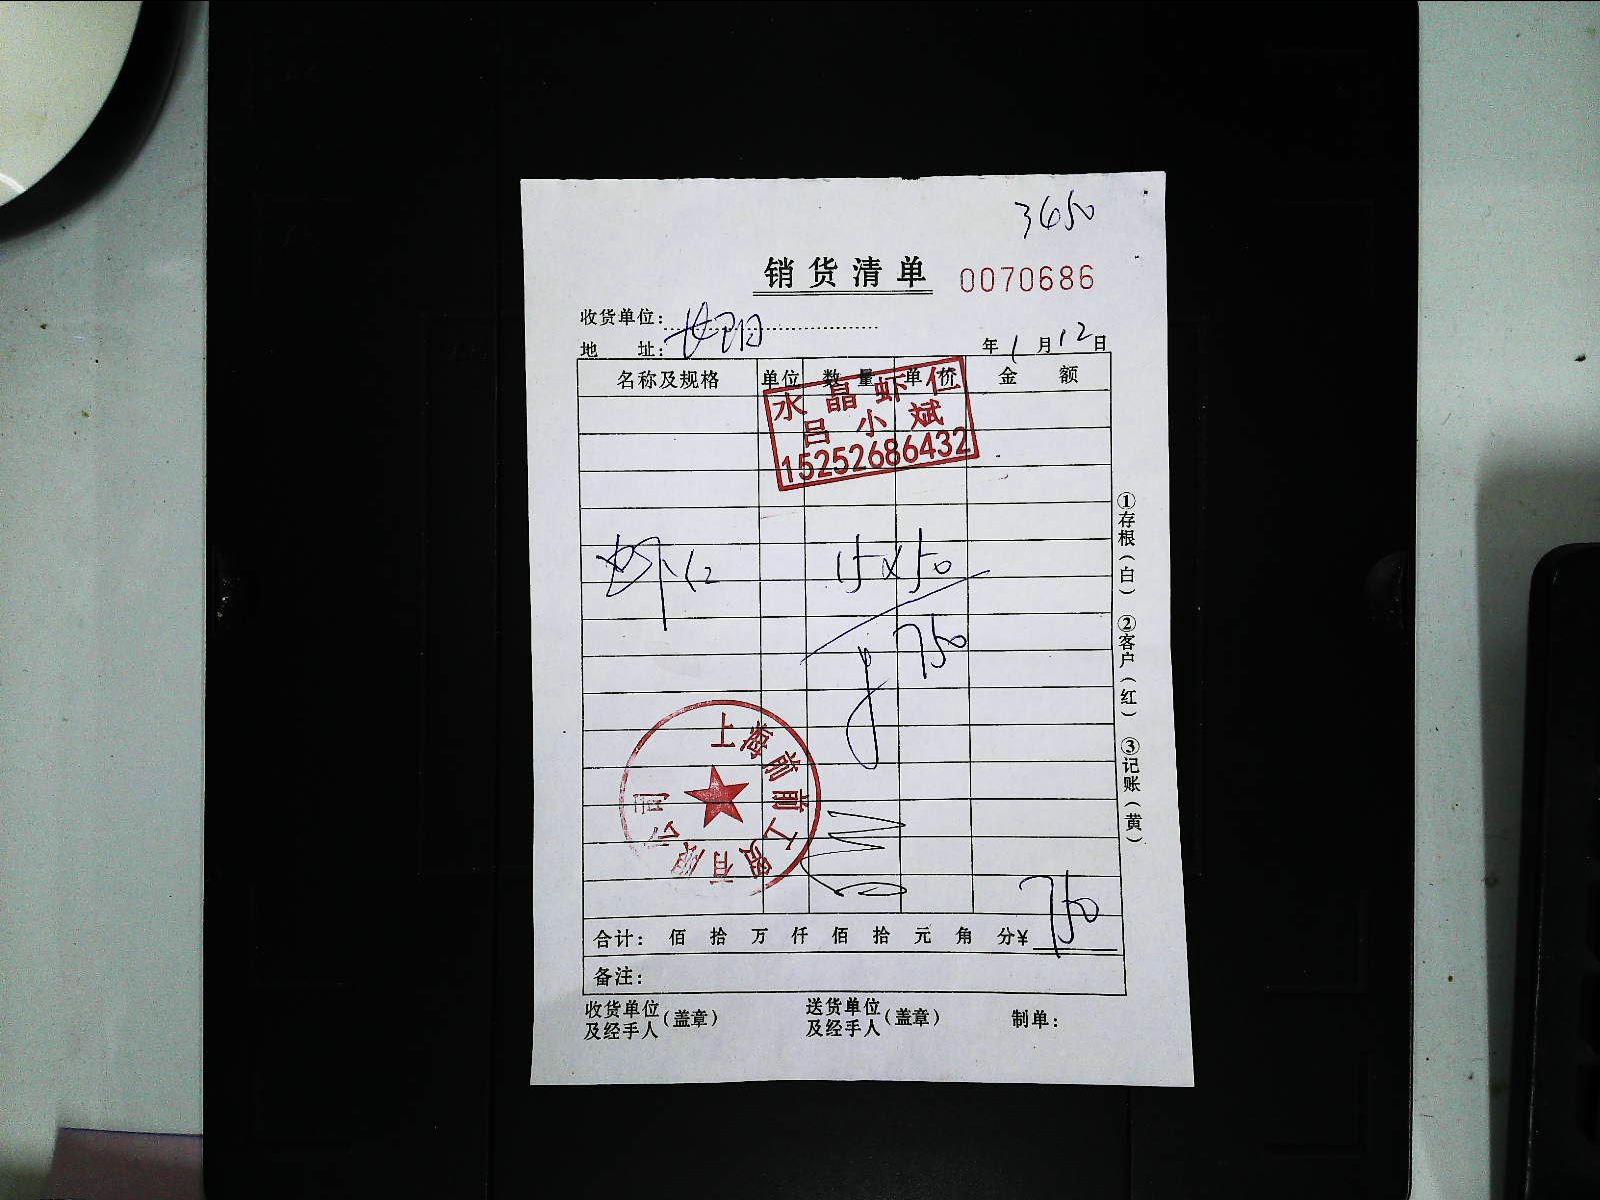 3650
销货清单 0070686
收货单位:
地 址:
年 1 月 12 日
名称及规格 单位 数量 单价 金额
水晶虾仁
吕小斌
15252686432
虾仁 15×50
750
上海前前工贸有限公司
合计: 佰 拾 万 仟 佰 拾 元 角 分¥ 750
备注:
收货单位及经手人(盖章) 送货单位及经手人(盖章) 制单:
①存根(白) ②客户(红) ③记账(黄)